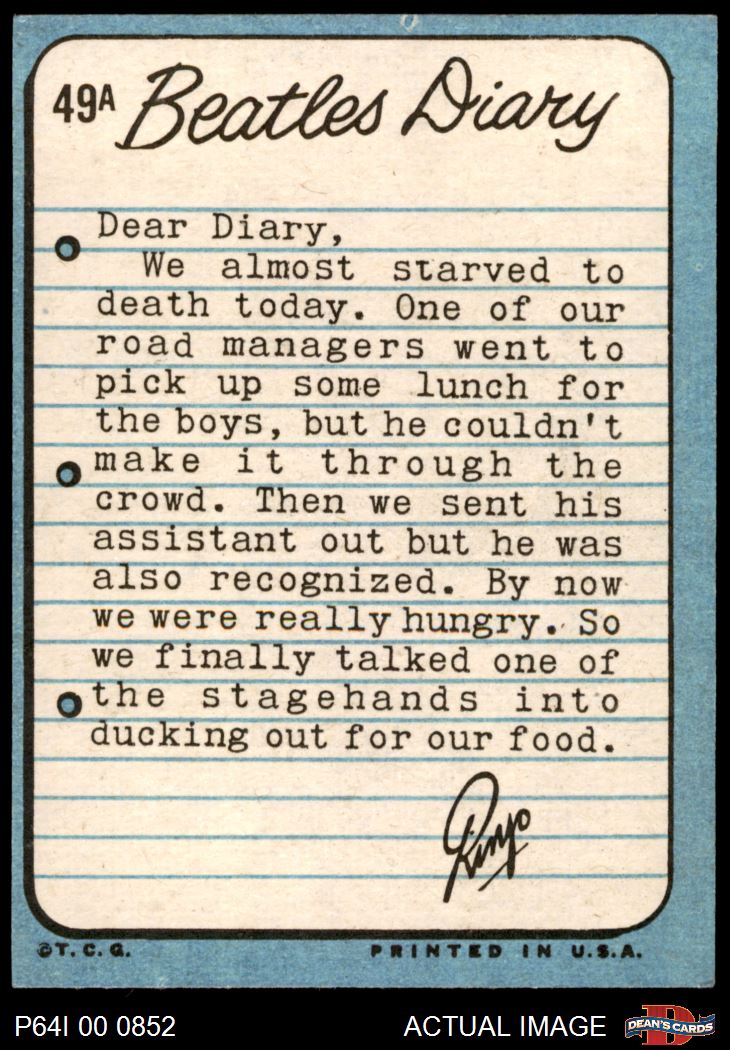 49A Beatles Diary
Dear Diary,
We almost starved to
death today. One of our
road managers went to
pick up some lunch for
the boys, but he couldn't
make it through the
crowd. Then we sent his
assistant out but he was
also recognized. By now
we were really hungry. So
we finally talked one of
the stagehands into
ducking out for our food.
Ringo
©T. C. G. PRINTED IN U.S.A.
P64I 00 0852 ACTUAL IMAGE D DEAN'S CARDS